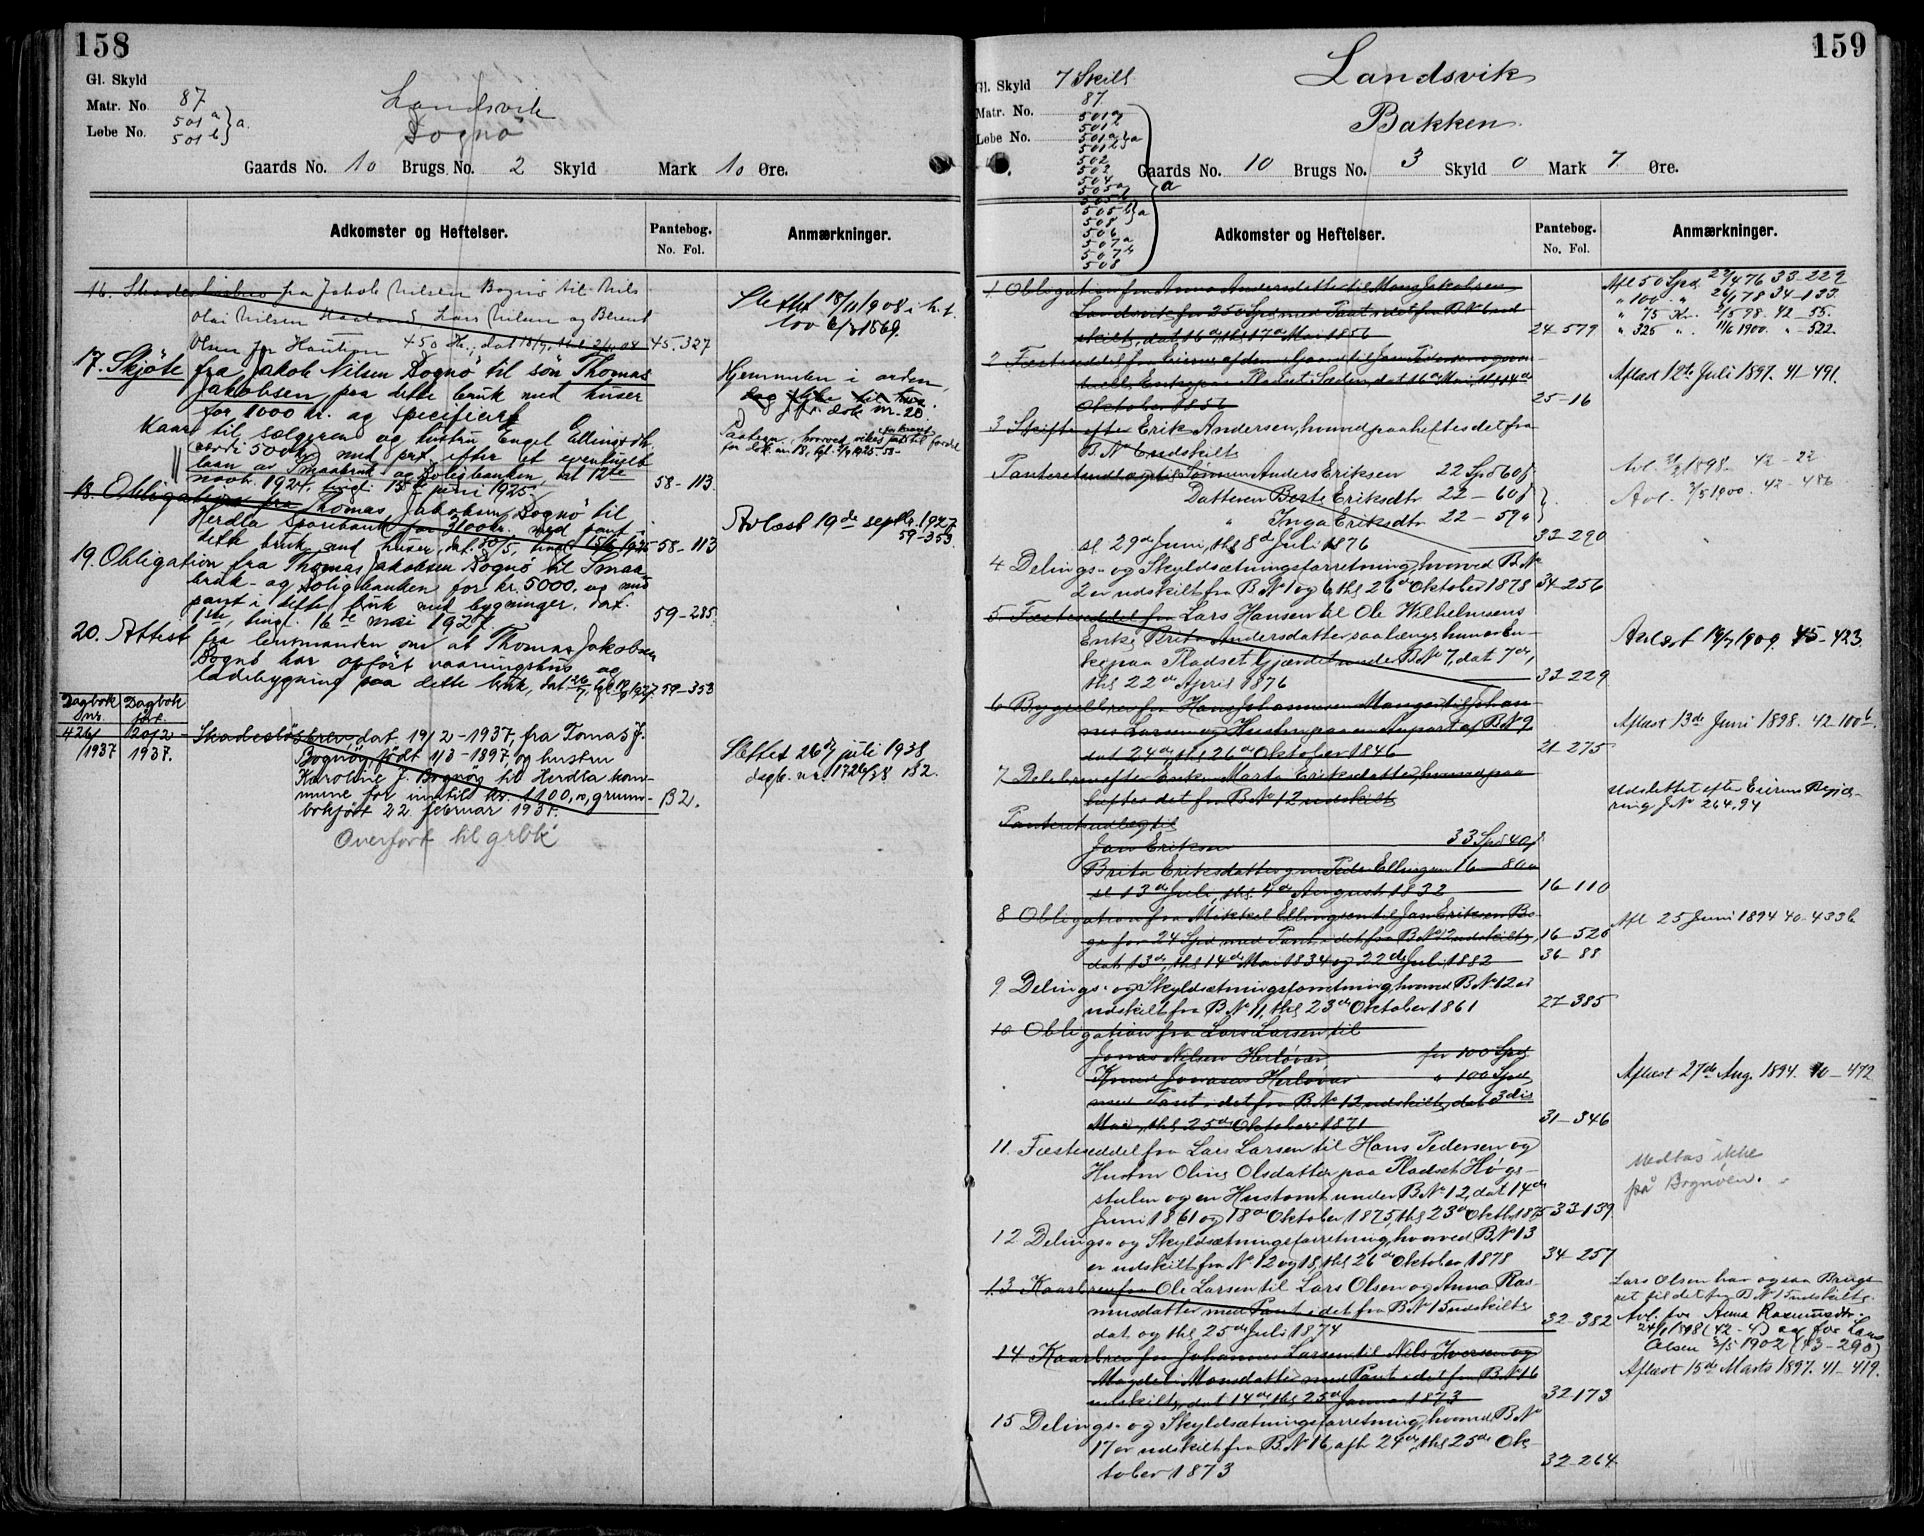 158
Gl. Skyld
Matr. No 87
Løbe No. 501 a } a.
501 b
Landsvik
Bognø
Gaards No. 10 Brugs No. 2 Skyld Mark 10 Øre.
Adkomster og Heftelser.
Pantebog.
No. Fol.
Anmærkninger.
16. Skadesløsbrev fra Jakob Nilsen Bognø til Nils
Olai Nilsen Lars Nilsen og Berent
Olsen jr 450 Kr., dat 45. 327
Slettet 18/11 1908 i h. t.
lov 6/3 1869.
17. Skjøte fra Jakob Nilsen Bognø til søn Thomas
Jakobsen paa dette bruk med huser
for 1000 kr. og specificert
Kaar til sælgeren og hustru Engel Ellingsdtr.
værdi 500 kr med 8 prt. efter et eventuelt
laan av Smaabruk og Boligbanken, dat 12te
novb. 1924, tingl. 15de juni 1925. 58-113
Hjemmelen i orden
jfr. dok nr. 20.
18. Obligation fra Thomas Jakobsen Bognø til
Herdla Sparebank for 3100 kr. med pant i
dette bruk med huser, dat. 30/5, tingl. 15/6 1925 58-113
Avlæst 19de septbr. 1927
59-353.
19. Obligation fra Thomas Jakobsen Bognø til Smaa-
bruk- og Boligbanken for kr. 5000. og med
pant i dette bruk med bygninger, dat.
1ste, tingl. 16te mai 1927. 59-285.
20. Attest fra lensmanden om at Thomas Jakobsen
Bognø har opført vaaningshus og
ladebygning paa dette bruk, dat 26/7, tgl. 19/9 1927. 59-353
Dagbok Dagbok
nr. ført.
426/ 20/2-
1937 1937.
Skadesløsbrev, dat 19/2-1937, fra Tomas J.
Bognøy, født 1/3-1897, og hustru
Karoline J. Bognøy til Herdla kom-
mune for inntil kr. 1100,00, grunn-
bokført 22. februar 1937. B2.
Slettet 26de juli 1938,
dagb. nr. 1726/38 B2.
Overført til grbk
159
Gl. Skyld 7 Skill
Matr. No. 87.
Løbe No. 501 a
501 b
501 a } a
501 b
502
502
504
505 a
505 b
505 b } a
508
506
507 a
507 b
508
a
Landsvik
Bakken
Gaards No. 10 Brugs No. 3 Skyld 0 Mark 7 Øre.
Adkomster og Heftelser.
Pantebog.
No. Fol.
Anmærkninger.
1 Obligation fra Anna Andersdatter til Mons Jakobsen
Landsvik for 250 Spd med Pant i det fra B.No ud-
skilt, dat 16de, thl 17de Mai 1856 24-579
Afl 50 Spd 22/4 76 33-229
" 100 " 26/1 78 34-133.
" 75 Kr. 2/5 98. 42-55.
" 325 " 11/6 1900. " -522.
2 Fæsteseddel fra
Enke paa Pladset dat 16de Mai, thl 14de
Oktober 1856 25-16
Aflæst 12te Juli 1897. 41-491.
3 Skifte efter Erik Andersen, hvorved paaheftes det fra
B.No udskilt
Panteretsudlæg til Sønnen Anders Eriksen 22 Spd 60 ß
Datteren Berte Eriksdtr 22-60 ß
" Inga Eriksdtr 22-59 "
sl 29de Juni, thl 8de Juli 1876 33-290
Avl. 2/1898 42-22
Avl. 2/5 1900. 42-486
4 Delings- og Skyldsætningsforretning, hvorved B.No
2 er udskilt fra B.No 1 og 6, thl 26de Oktober 1878 34-256
5 Fæsteseddel fra Lars Hansen til Ole Wilhelmsens
Enke Brita Andersdatter saalænge hun er En-
ke paa Pladset Gjærdet under B.No 7, dat 7de,
thl 22de April 1876 33-229
Avlæst 1909. 45-423.
6 Bygselbrev fra Hans Johannesen Manger til Johan-
nes Larsen og Hustru paa en Anpart af B.No 9
dat 24de, thl 26de Oktober 1846 21-275
Aflæst 13de Juni 1898. 42-100 b.
7 Delebrev efter Enken Marta Eriksdatter, hvorved paa-
heftes det fra B.No 12 udskilt
Panteretsudlæg til
Jan Eriksen 33 Spd 40 ß
Brita Eriksdatter gm Peder Ellingsen 16-80 "
sl 13de Juli, thl 4de August 1832 16-110
Udslettet efter Eierens Begjæ-
ring J No 264, 94
8 Obligation fra Mikkel Ellingsen til Jan Eriksen Bo-
gø for 24 Spd med Pant i det fra B.No 12 udskilt, 16-520
dat 13de, thl 14de Mai 1834 og 22de Juli 1882 36-88
Afl 25 Juni 1894 40-433 b
9 Delings- og Skyldsætningsforretning, hvorved B.No 12 er
udskilt fra B.No 11, thl 23de Oktober 1861 27-385
10 Obligation fra Lars Larsen til
Jonas Nilsen Herløvær for 100 Spd
Knud Jonasen Herløvær " 100 Spd
med Pant i det fra B.No 12 udskilt, dat 3die
Mai, thl 25de Oktober 1871 31-346
Aflæst 27de Aug. 1894. 40-472
11. Fæsteseddel fra Lars Larsen til Hans Pedersen og
Hustru Oline Olsdatter paa Pladset Høgs-
stulen og en Hustomt under B.No 12, dat 14de
Juni 1861 og 18de Oktober 1875, thl 23de Oktb. 1875 33-139
Medtas ikke
på Bognøen.
12 Delings- og Skyldsætningsforretning, hvorved B.No 13
er udskilt fra No 12 og 18, thl 26de Oktober 1878 34-257
13 Kaarbrev fra Ole Larsen til Lars Olsen og Anna Ras-
musdatter med Pant i det fra B.No 15 udskilt,
dat. og thl 25de Juli 1874 32-382
Lars Olsen har ogsaa Brugs-
ret til det fra B.No 15 udskilte.
Avl. for Anna Rasmusdtr.
24/1 1898 (42-4) og for Lars
Olsen 2/5 1902 (43-290)
14 Kaarbrev fra Johannes Larsen til Nils Iversen og
Magdeli Monsdatter med Pant i det fra B.No 16
udskilt, dat 14de, thl 25de Januar 1873 32-173
Aflæst 15de Marts 1897. 41-419.
15 Delings- og Skyldsætningsforretning, hvorved B.No
17 er udskilt fra B.No 16, afh 24de, thl 25de Ok-
tober 1873 32-264